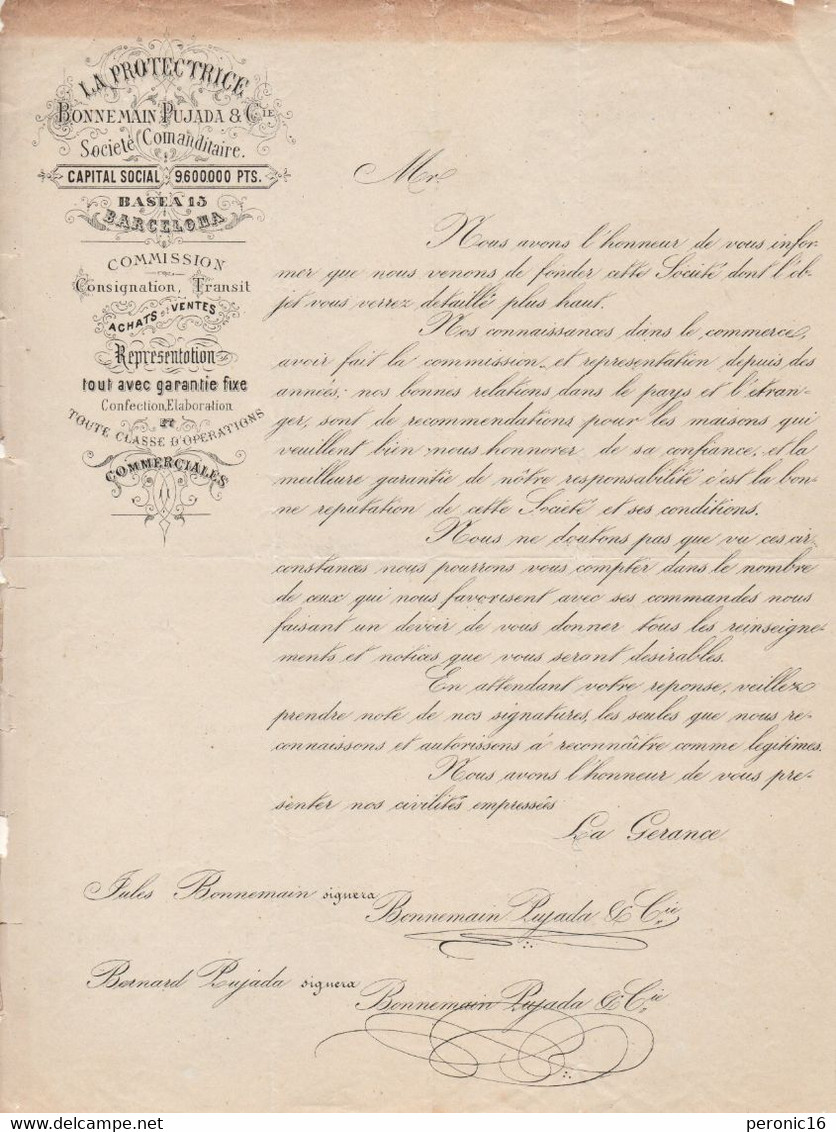 LA PROTECTRICE
BONNEMAIN PUJADA & CIE
Societé Comanditaire.
CAPITAL SOCIAL 9.600.000 PTS.
BASEA 15
BARCELONA
COMMISSION
Consignation, Transit
ACHATS et VENTES
Representation
tout avec garantie fixe
Confection, Elaboration
ET
TOUTE CLASSE D'OPERATIONS
COMMERCIALES
Mr.
Nous avons l'honneur de vous infor-
mer que nous venons de fonder cette Société dont l'ob-
jet vous verrez detaillé plus haut.
Nos connaissances dans le commerce,
avoir fait la commission et representation depuis des
années, nos bonnes relations dans le pays et l'etran-
ger, sont de recommendations pour les maisons qui
veuillent bien nous honnorer de sa confiance, et la
meilleure garantie de nôtre responsabilité c'est la bon-
ne reputation de cette Societé et ses conditions.
Nous ne doutons pas que vu ces cir-
constances nous pourrons vous compter dans le nombre
de ceux qui nous favorisent avec ses commandes nous
faisant un devoir de vous donner tous les reinseigne-
ments et notices que vous serant desirables.
En attendant votre reponse, veillez
prendre note de nos signatures, les seules que nous re-
connaissons et autorissons à reconnaître comme legitimes.
Nous avons l'honneur de vous pre-
senter nos civilités empressées
La Gerance
Jules Bonnemain signera
Bonnemain Pujada & Cie
Bernard Pujada signera
Bonnemain Pujada & Cie
delcampe.net
peronic16